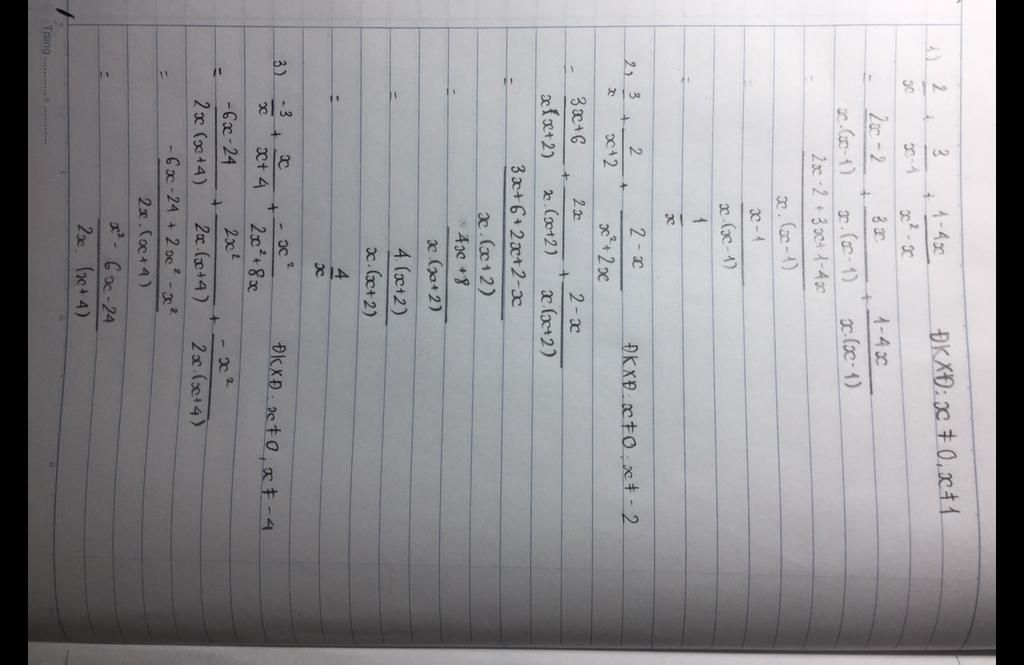 1) 2/x + 3/(x-1) + (1-4x)/(x²-x) ĐKXĐ: x ≠ 0, x ≠ 1
= (2x-2)/(x.(x-1)) + 3x/(x.(x-1)) + (1-4x)/(x.(x-1))
= (2x-2+3x+1-4x)/(x.(x-1))
= (x-1)/(x.(x-1))
= 1/x
2) 3/x + 2/(x+2) + (2-x)/(x²+2x) ĐKXĐ: x ≠ 0, x ≠ -2
= (3x+6)/(x(x+2)) + 2x/(x.(x+2)) + (2-x)/(x.(x+2))
= (3x+6+2x+2-x)/(x.(x+2))
= (4x+8)/(x.(x+2))
= (4.(x+2))/(x.(x+2))
= 4/x
3) -3/x + x/(x+4) + (-x²)/(2x²+8x) ĐKXĐ: x ≠ 0, x ≠ -4
= (-6x-24)/(2x(x+4)) + 2x²/(2x.(x+4)) + (-x²)/(2x.(x+4))
= (-6x-24+2x²-x²)/(2x.(x+4))
= (x²-6x-24)/(2x.(x+4))
Trang